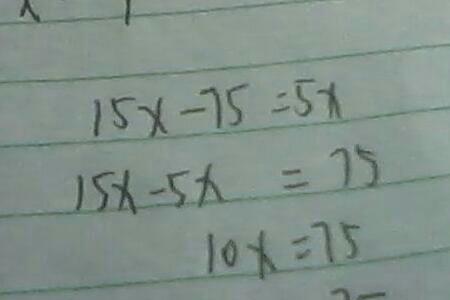 15x-75=5x
15x-5x = 75
10x=75